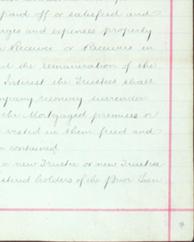 paid off or satisfied and
ages and expenses properly
Receiver or Receivers in
the remuneration of the
Interest the Trustees shall
company recovery surrender
the Mortgaged premises or
vested in them freed and
contained
a new Trustee or new Trustees
holders of the Prior Lien